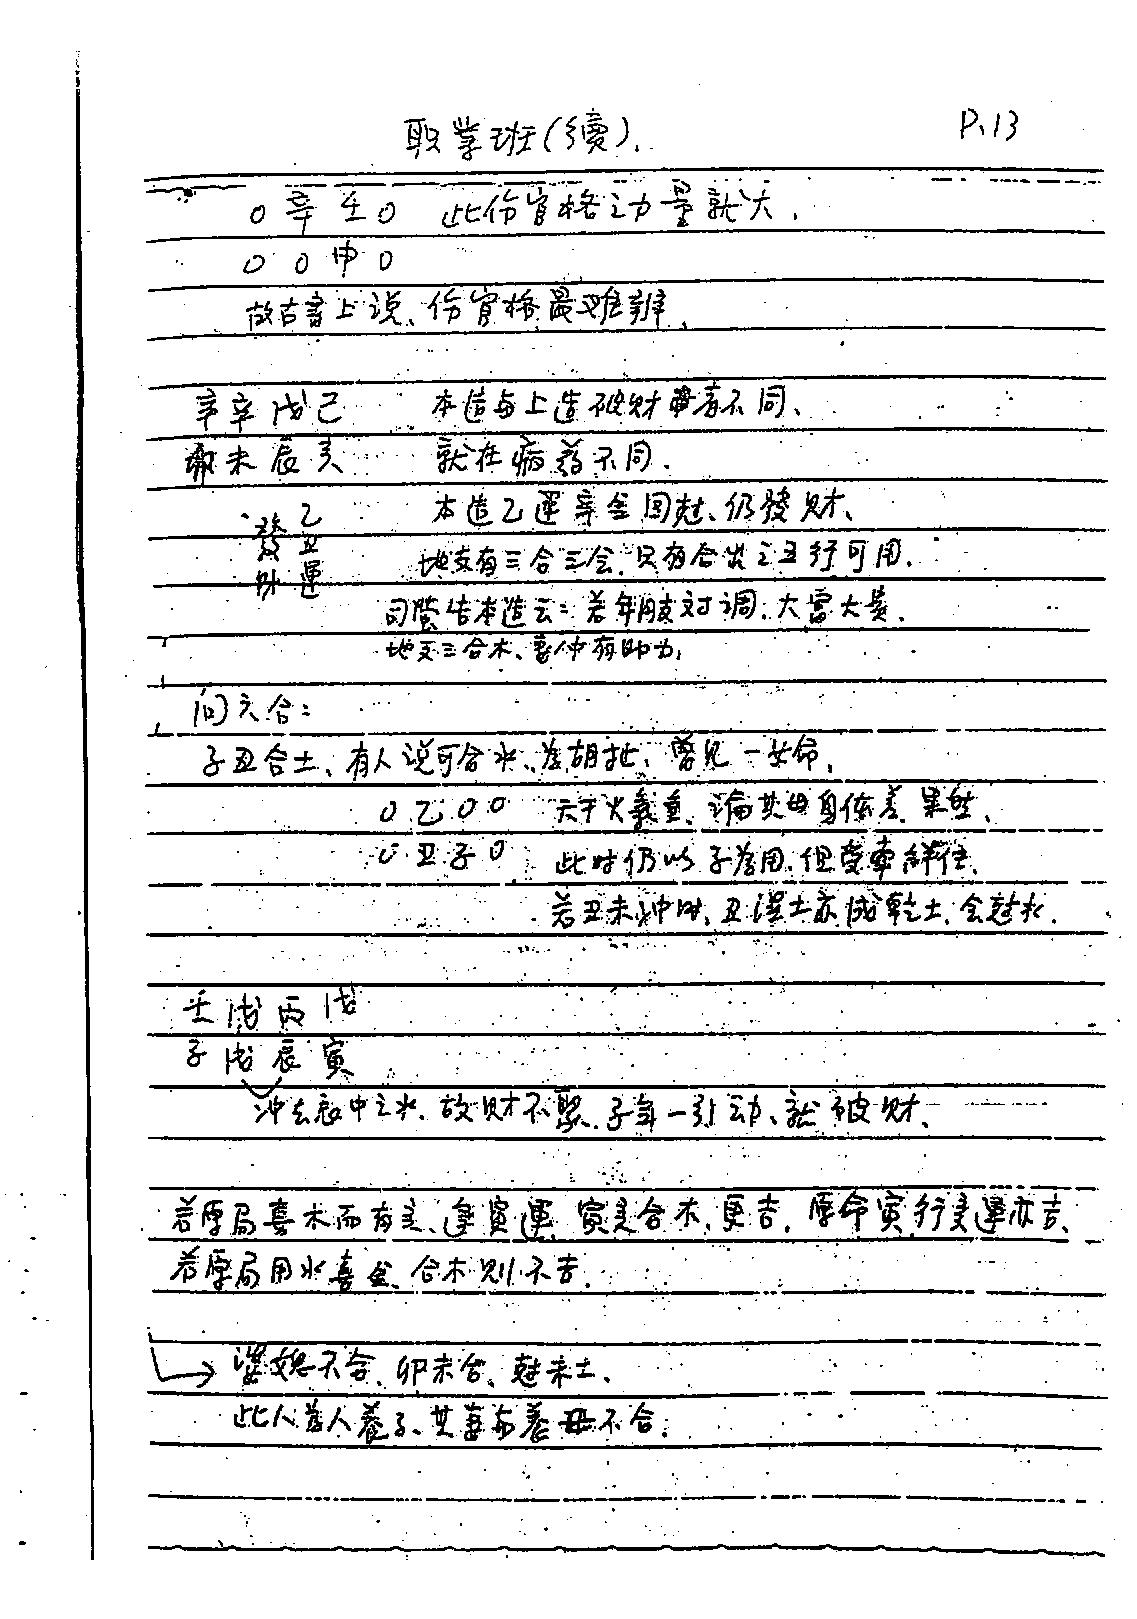 职業班(續). P.13
0 辛 壬 0 此伤官格之力量就大.
0 0 申 0
故古書上说、伤官格最难辨.
辛辛戊己 本造与上造破财者不同、
卯未辰亥 就在病药不同.
乙丑運 發财 本造乙運辛金回尅、仍發财、
地支有三合三会、只有合出之五行可用.
司螢告本造云: 若年月支对调、大富大贵.
地支三合木、喜神有助力;
问六合:
子丑合土、有人说可合水、为胡扯、曾见一女命,
0 乙 0 0 天干火氣重、論其母身体差、果然、
0 丑 子 0 此时仍以子為用、但受牽絆住.
若丑未冲时、丑湿土亦成乾土、会尅水.
壬戊丙戊
子戌辰寅
冲去辰中之水、故财不聚、子年一引动、就破财、
若原局喜木而有亥、逢寅運、寅亥合木、更吉. 原命寅行亥運亦吉、
若原局用水喜金、合木则不吉.
→ 婆媳不合、卯未合、尅未土、
此人為人養子、其妻与養母不合.